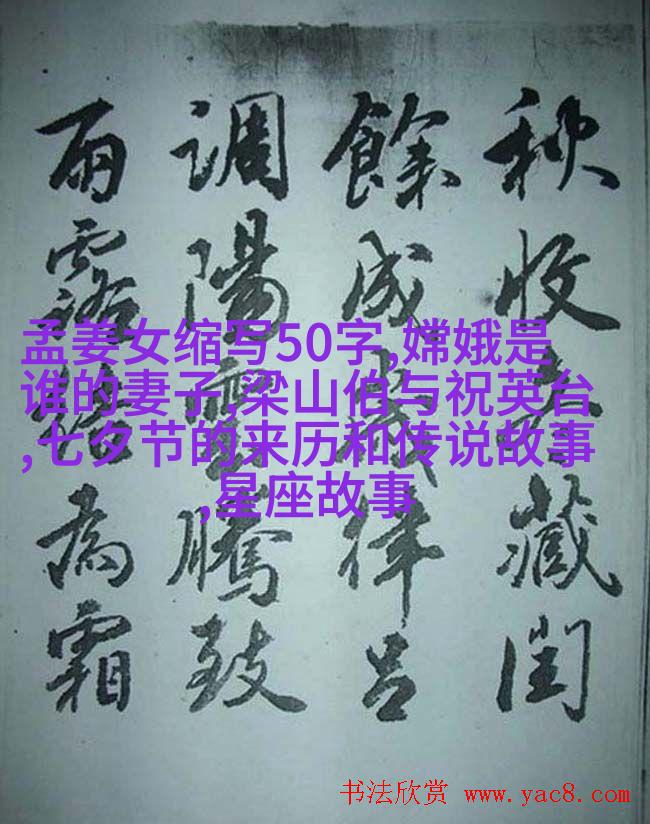 秋收冬藏閏
餘成歲律呂
調陽雲騰致
雨露結為霜
孟姜女缩写50字,嫦娥是
谁的妻子,梁山伯与祝英台
,七夕节的来历和传说故事
,星座故事
书法欣赏 www.yac8.com